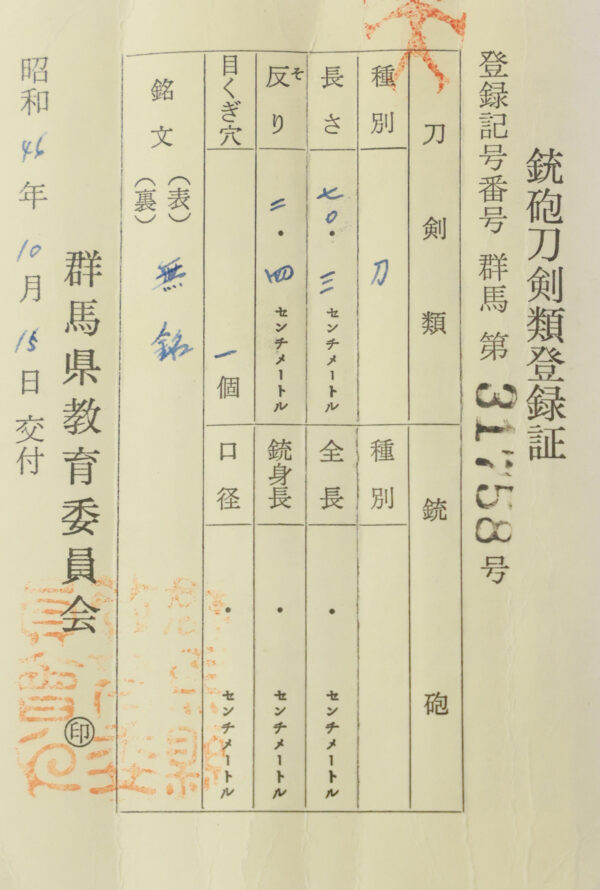 銃砲刀剣類登録証
登録記号番号 群馬 第 31758 号
刀剣類
銃砲
種別 刀
種別
長さ 七〇・三 センチメートル
全長 ・ センチメートル
反り そ 二・四 センチメートル
銃身長 ・ センチメートル
目くぎ穴 一個
口径 ・ センチメートル
銘文 (表) 無銘
(裏)
群馬県教育委員会 ㊞
昭和 46 年 10 月 15 日 交付